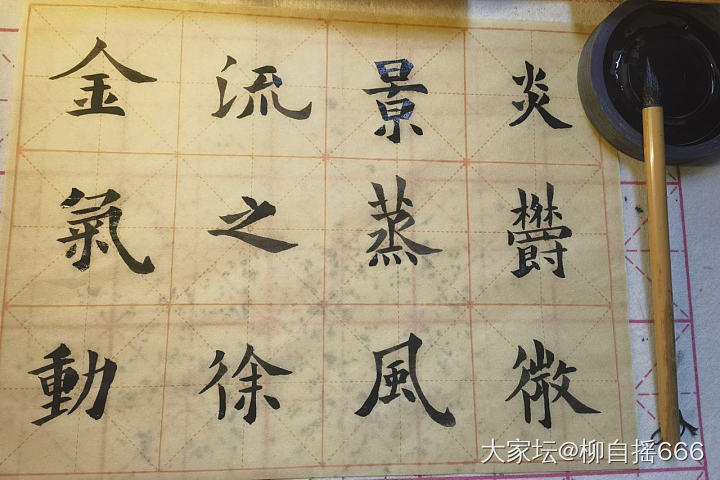 炎景流金
欝蒸之氣
微風徐動
大家坛@柳自摇666